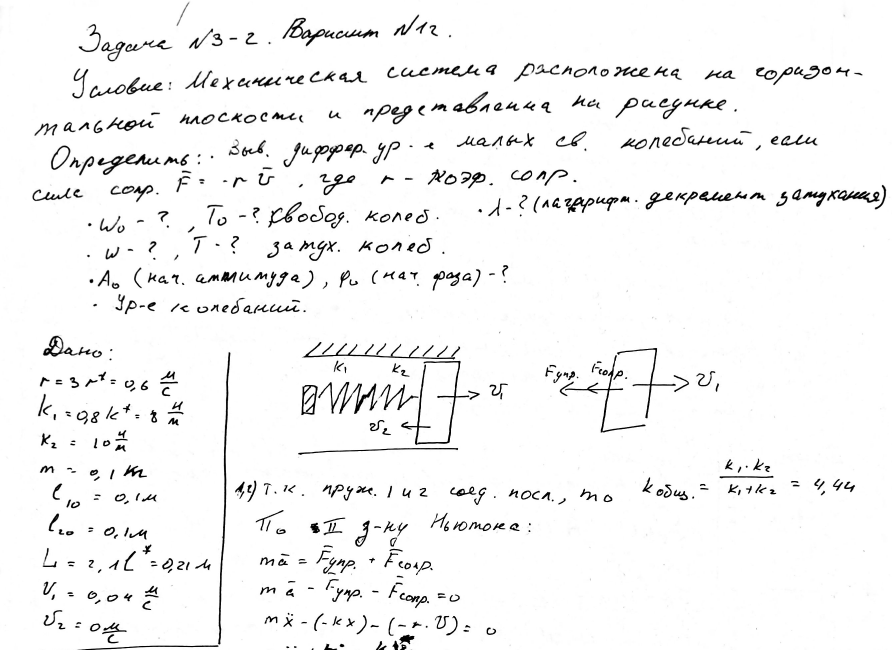 Задача N3-2. Вариант N12.
Условие: Механическая система расположена на горизон-
тальной плоскости и представленна на рисунке.
Определить: · Выв. диффер. ур-е малых св. колебаний, если
сила сопр. F̄ = -r ῡ, где r - коэф. сопр.
· ω₀ - ?, T₀ - ? свобод. колеб. · λ - ? (логарифм. декремент затухания)
· ω - ?, T - ? затух. колеб.
· A₀ (нач. амплитуда), φ₀ (нач. фаза) - ?
· Ур-е колебаний.
Дано:
r = 3r* = 0,6 м/с
k₁ = 0,8k* = 8 н/м
k₂ = 10 н/м
m = 0,1 кг
l₁₀ = 0,1м
l₂₀ = 0,1м
L = 2,1l* = 0,21м
υ₁ = 0,04 м/с
υ₂ = 0 м/с
k₁ k₂
υ₁
υ₂
Fупр. Fсопр.
υ₁
1,2) Т.к. пруж. 1 и 2 соед. посл., то kобщ. = k₁·k₂/(k₁+k₂) = 4,44
По II з-ну Ньютона:
mā = F̄упр. + F̄сопр.
mā - F̄упр. - F̄сопр. = 0
mẍ - (-kx) - (-r·υ) = 0